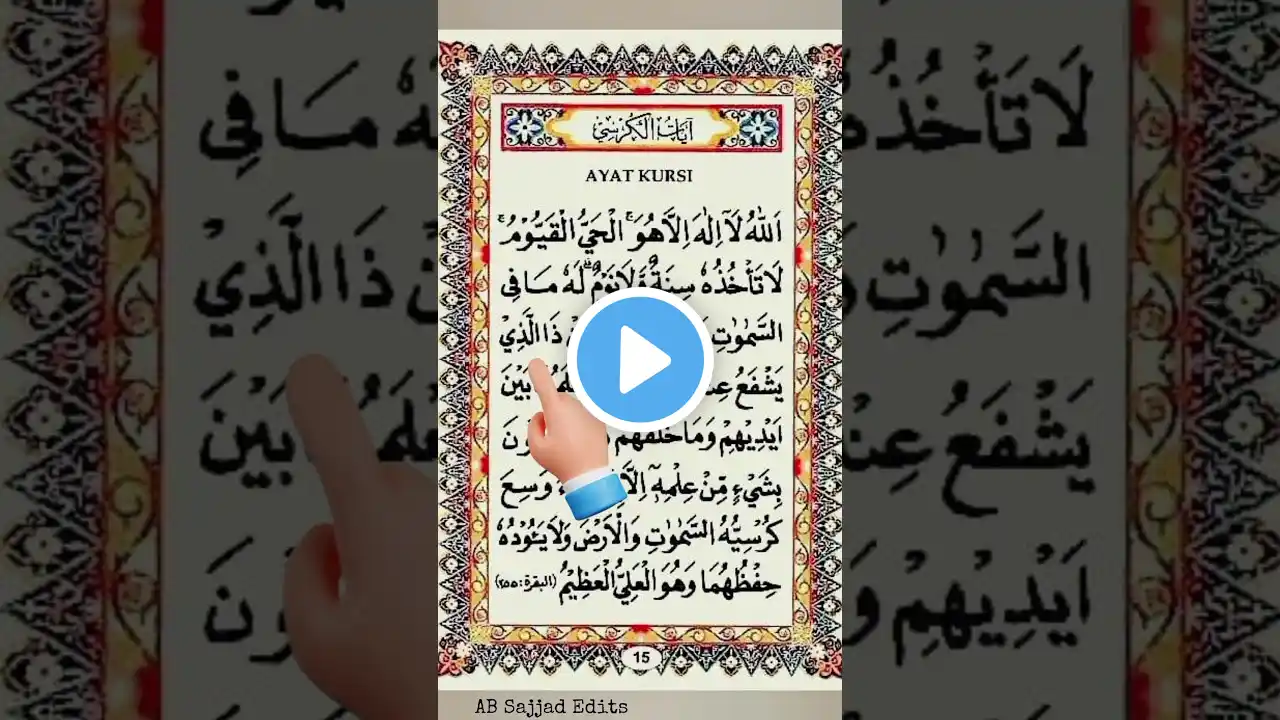 آيات الكرسي
AYAT KURSI
اَللّٰهُ لَآ اِلٰهَ اِلَّا هُوَۚ الْحَيُّ الْقَيُّوْمُ ۚ
لَا تَأْخُذُهٗ سِنَةٌ وَّلَا نَوْمٌۗ لَهٗ مَا فِى
السَّمٰوٰتِ ذَا الَّذِيْ
يَشْفَعُ بَيْنَ
اَيْدِيْهِمْ وَمَا خَلْفَهُمْ
بِشَيْءٍ مِّنْ عِلْمِهٖٓ وَسِعَ
كُرْسِيُّهُ السَّمٰوٰتِ وَالْاَرْضَ وَلَا يَـُٔوْدُهٗ
حِفْظُهُمَا وَهُوَ الْعَلِيُّ الْعَظِيْمُ (البقرة: ٢٥٥)
15
AB Sajjad Edits